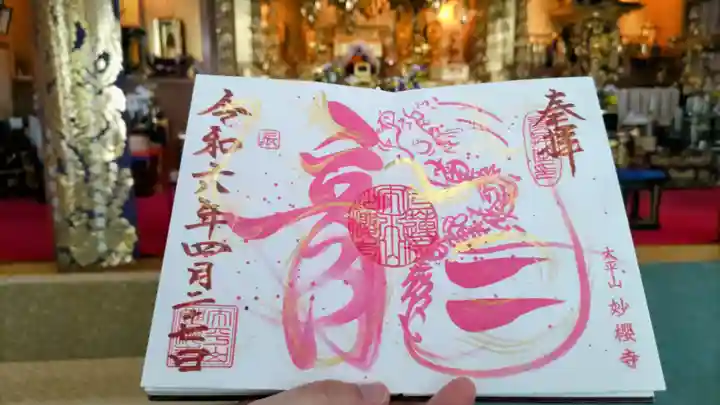 奉拝
太平山 妙櫻寺
龍
辰
令和六年四月二十七日